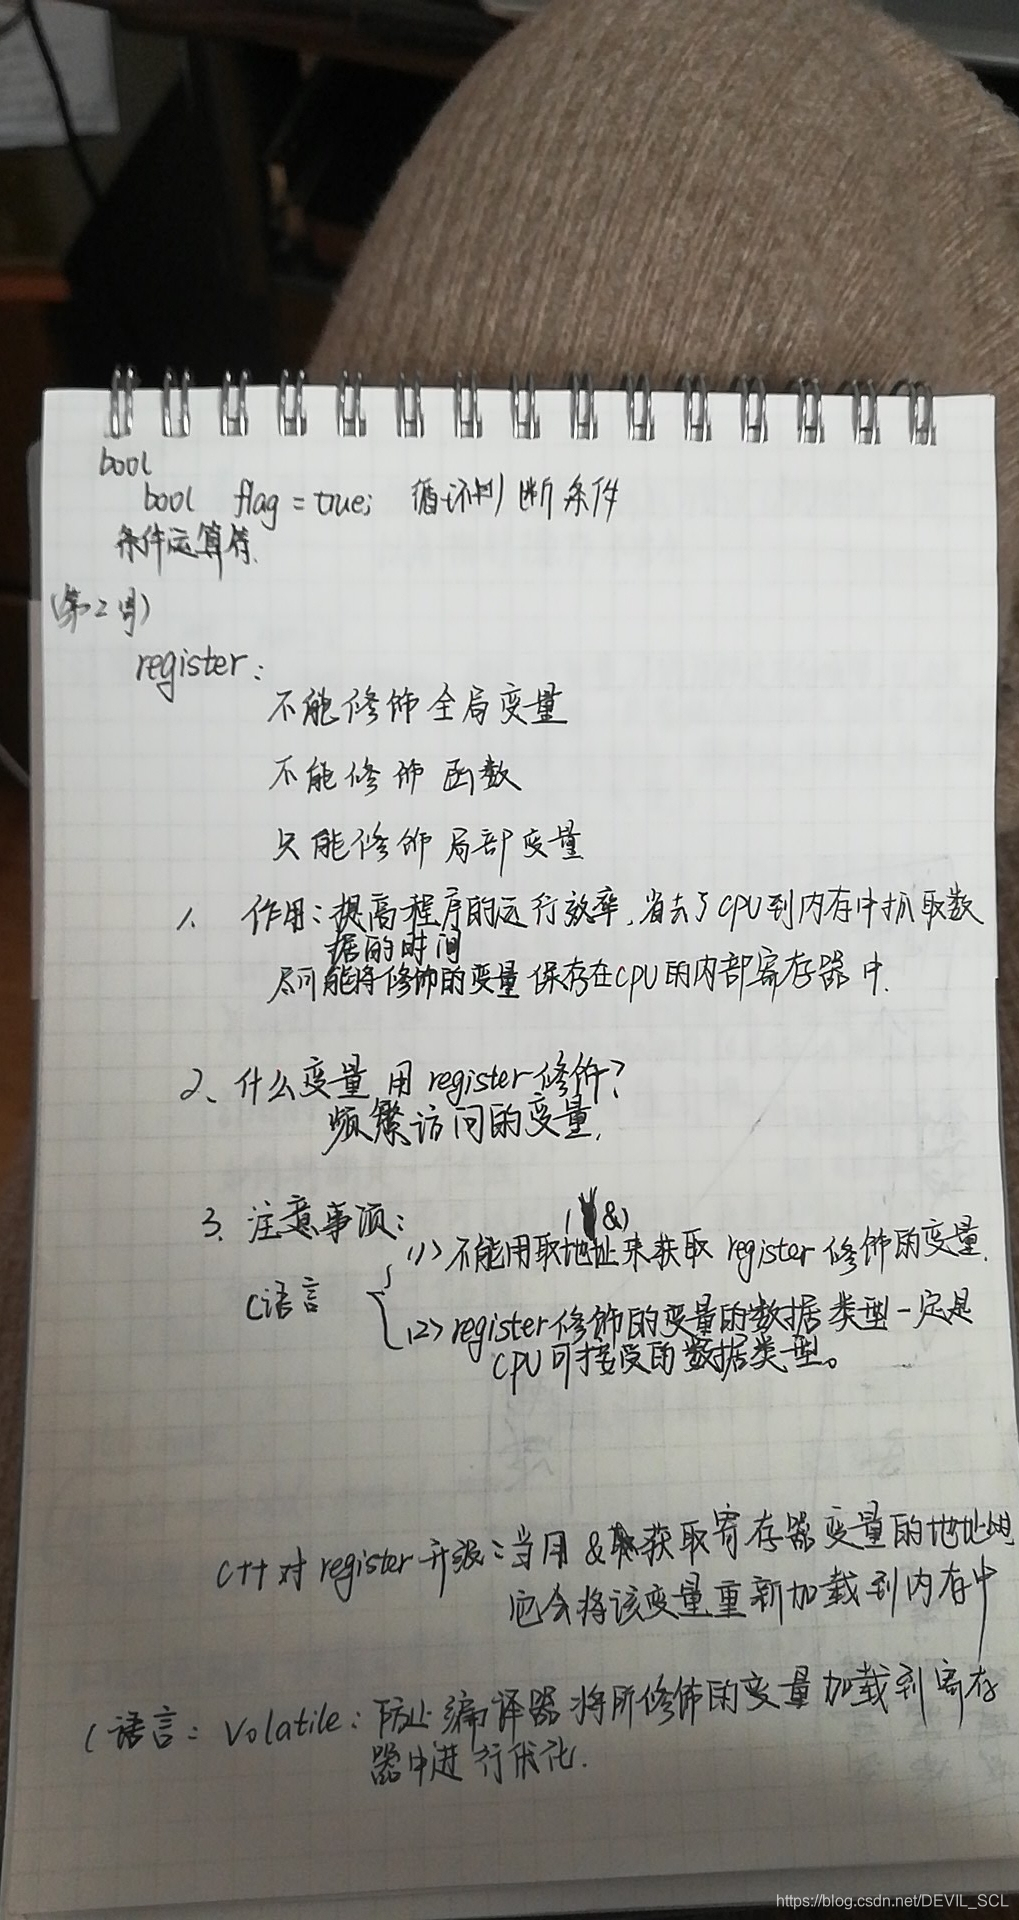 bool
bool flag = true; 循环判断条件
条件运算符.
(第2周)
register:
不能修饰全局变量
不能修饰函数
只能修饰局部变量
1、 作用:提高程序的运行效率,省去了CPU到内存中抓取数
据的时间
尽可能将修饰的变量保存在CPU的内部寄存器中.
2、什么变量用register修饰?
频繁访问的变量.
3、注意事项:
( &)
(1)不能用取地址来获取register修饰的变量.
C语言
(2)register修饰的变量的数据类型一定是
CPU可接受的数据类型。
C++对register升级:当用&来获取寄存器变量的地址时
它会将该变量重新加载到内存中
C语言:Volatile:防止编译器将所修饰的变量加载到寄存
器中进行优化.
https://blog.csdn.net/DEVIL_SCL